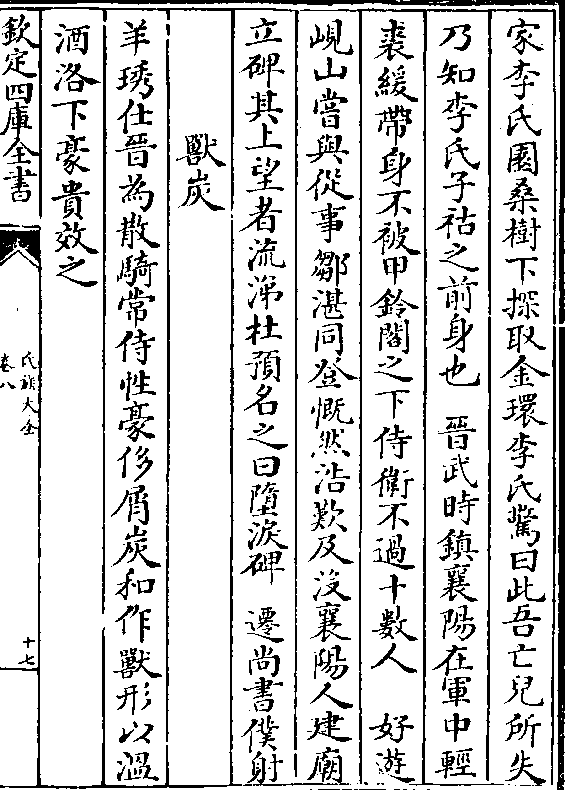 家李氏園桑樹下探取金環李氏驚曰此吾亡兒所失
乃知李氏子祜之前身也　晉武時鎮襄陽在軍中輕
裘緩帶身不被甲鈴閣之下侍衛不過十數人　好遊
峴山嘗與從事鄒湛同登慨然浩歎及没襄陽人建廟
立碑其上望者流涕杜預名之曰墮淚碑　遷尚書僕射
獸炭
羊琇仕晉為散騎常侍性豪侈屑炭和作獸形以溫
酒洛下豪貴效之
欽定四庫全書
氏族大全
卷八
十七